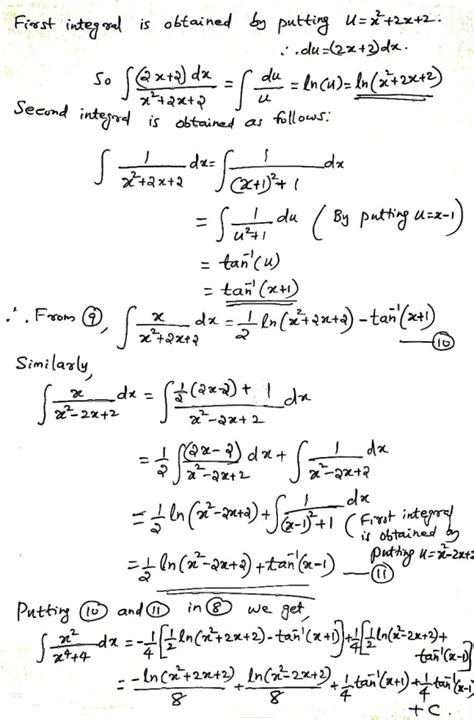 First integral is obtained by putting u=x²+2x+2.
∴ du=(2x+2)dx.
So ∫ (2x+2)dx / x²+2x+2 = ∫ du/u = ln(u) = ln(x²+2x+2)
Second integral is obtained as follows:
∫ 1/x²+2x+2 dx = ∫ 1/(x+1)²+1 dx
= ∫ 1/u²+1 du ( By putting u=x-1)
= tan⁻¹(u)
= tan⁻¹(x+1)
∴ From ⑨, ∫ x/x²+2x+2 dx = 1/2 ln(x²+2x+2) - tan⁻¹(x+1) —⑩
Similarly,
∫ x/x²-2x+2 dx = ∫ 1/2(2x-2)+1 / x²-2x+2 dx
= 1/2 ∫ (2x-2)/x²-2x+2 dx + ∫ 1/x²-2x+2 dx
= 1/2 ln(x²-2x+2) + ∫ 1/(x-1)²+1 dx (First integral
is obtained by
putting u=x²-2x+2
= 1/2 ln(x²-2x+2) + tan⁻¹(x-1) —⑪
Putting ⑩ and ⑪ in ⑧ we get,
∫ x²/x⁴+4 dx = -1/4[1/2 ln(x²+2x+2) - tan⁻¹(x+1)] + 1/4[1/2 ln(x²-2x+2) + tan⁻¹(x-1)]
= -ln(x²+2x+2)/8 + ln(x²-2x+2)/8 + 1/4 tan⁻¹(x+1) + 1/4 tan⁻¹(x-1)
+ C.